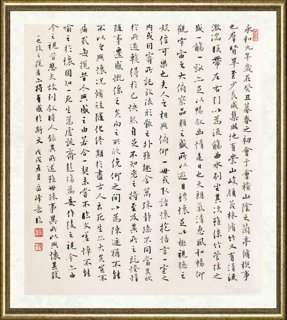 永和九年歲在癸丑暮春之初會于會稽山陰之蘭亭脩稧事
也羣賢畢至少長咸集此地有崇山峻領茂林脩竹又有清流
激湍暎帶左右引以為流觴曲水列坐其次雖無絲竹管弦之
盛一觴一詠亦足以暢敘幽情是日也天朗氣清惠風和暢仰
觀宇宙之大俯察品類之盛所以遊目騁懷足以極視聽之
娛信可樂也夫人之相與俯仰一世或取諸懷抱悟言一室之
內或因寄所託放浪形骸之外雖趣舍萬殊靜躁不同當其欣
於所遇暫得於己快然自足不知老之將至及其所之既惓情
隨事遷感慨係之矣向之所欣俛仰之間以為陳迹猶不能不
以之興懷況脩短隨化終期於盡古人云死生亦大矣豈不
痛哉每攬昔人興感之由若合一契未嘗不臨文嗟悼不能
喻之於懷固知一死生為虛誕齊彭殤為妄作後之視今亦由
今之視昔悲夫故列敘時人錄其所述雖世殊事異所以興懷其致
一也後之攬者亦將有感於斯文 戊戌五月